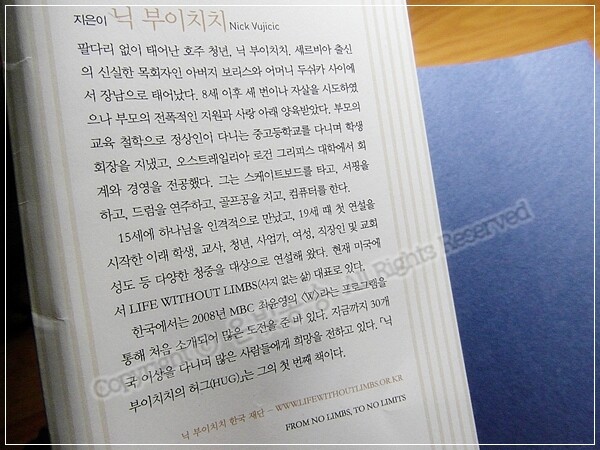 지은이 닉 부이치치 Nick Vujicic
팔다리 없이 태어난 호주 청년, 닉 부이치치. 세르비아 출신
의 신실한 목회자인 아버지 보리스와 어머니 두쉬카 사이에
서 장남으로 태어났다. 8세 이후 세 번이나 자살을 시도하였
으나 부모의 전폭적인 지원과 사랑 아래 양육받았다. 부모의
교육 철학으로 정상인이 다니는 중고등학교를 다니며 학생
회장을 지냈고, 오스트레일리아 로건 그리피스 대학에서 회
계와 경영을 전공했다. 그는 스케이트보드를 타고, 서핑을
하고, 드럼을 연주하고, 골프공을 치고, 컴퓨터를 한다.
15세에 하나님을 인격적으로 만났고, 19세 때 첫 연설을
시작한 이래 학생, 교사, 청년, 사업가, 여성, 직장인 및 교회
성도 등 다양한 청중을 대상으로 연설해 왔다. 현재 미국에
서 LIFE WITHOUT LIMBS(사지 없는 삶) 대표로 있다.
한국에서는 2008년 MBC 최윤영의 〈W〉라는 프로그램을
통해 처음 소개되어 많은 도전을 준 바 있다. 지금까지 30개
국 이상을 다니며 많은 사람들에게 희망을 전하고 있다. 『닉
부이치치의 허그(HUG)』는 그의 첫 번째 책이다.
닉 부이치치 한국 재단 – WWW.LIFEWITHOUTLIMBS.OR.KR
FROM NO LIMBS, TO NO LIMITS
Copyright ⓒ All Rights Reserved